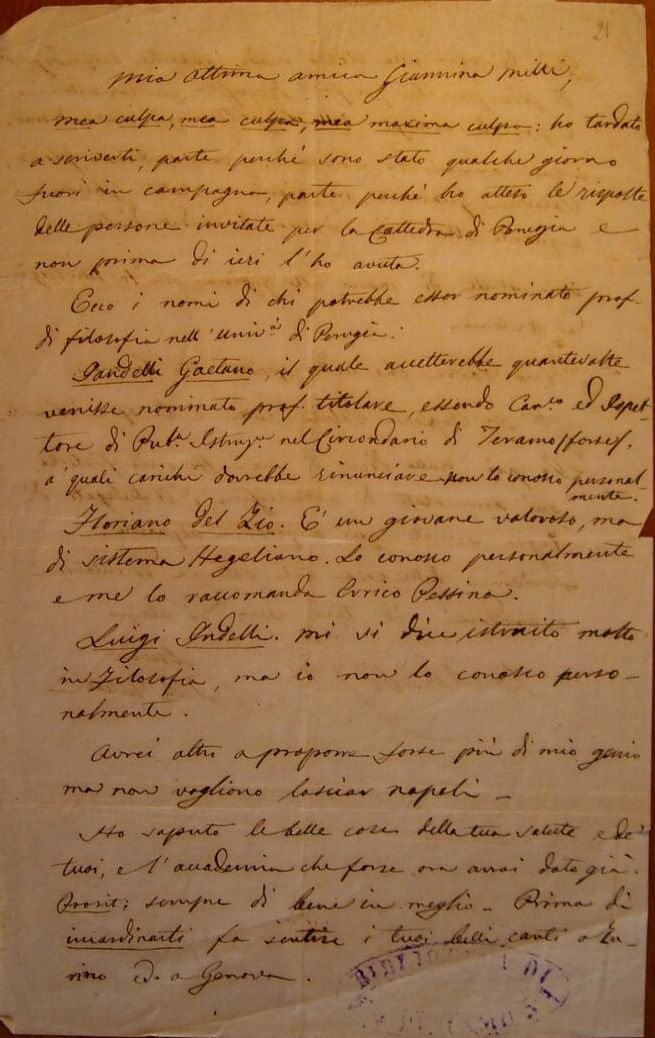 21
Mia ottima amica Giannina Milli,
Mea culpa, mea culpa, mea maxima culpa: ho tardato
a scriverti, parte perché sono stato qualche giorno
fuori in campagna, parte perché ho atteso le risposte
delle persone invitate per la Cattedra di Perugia e
non prima di ieri l'ho avuta.
Ecco i nomi di chi potrebbe esser nominato prof.
di filosofia nell'Univ.à di Perugia.
Gaetano, il quale accetterebbe quantevolte
venisse nominato prof. titolare, essendo Can.co ed Ispet-
tore di Pub.a Istruz.e nel Circondario di Teramo (forse).
a' quali carichi dovrebbe rinunciare non lo conosco personal-
mente.
Floriano Del Zio. E' un giovane valoroso, ma
di sistema Hegeliano. Lo conosco personalmente
e me lo raccomanda Enrico Pessina.
Luigi Indelli. Mi si dice istruito molto
in Filosofia, ma io non lo conosco perso-
nalmente.
Avrei altri a proporre forse più di mio genio
ma non vogliono lasciar Napoli –
Ho saputo le belle cose della tua salute e de'
tuoi, e l'accademia che forse ora avrai dato già.
Prosit; sempre di bene in meglio – Prima di
incardinarti fa sentire i tuoi belli canti a Tu-
rino ed a Genova.
BIBLIOTECA DI